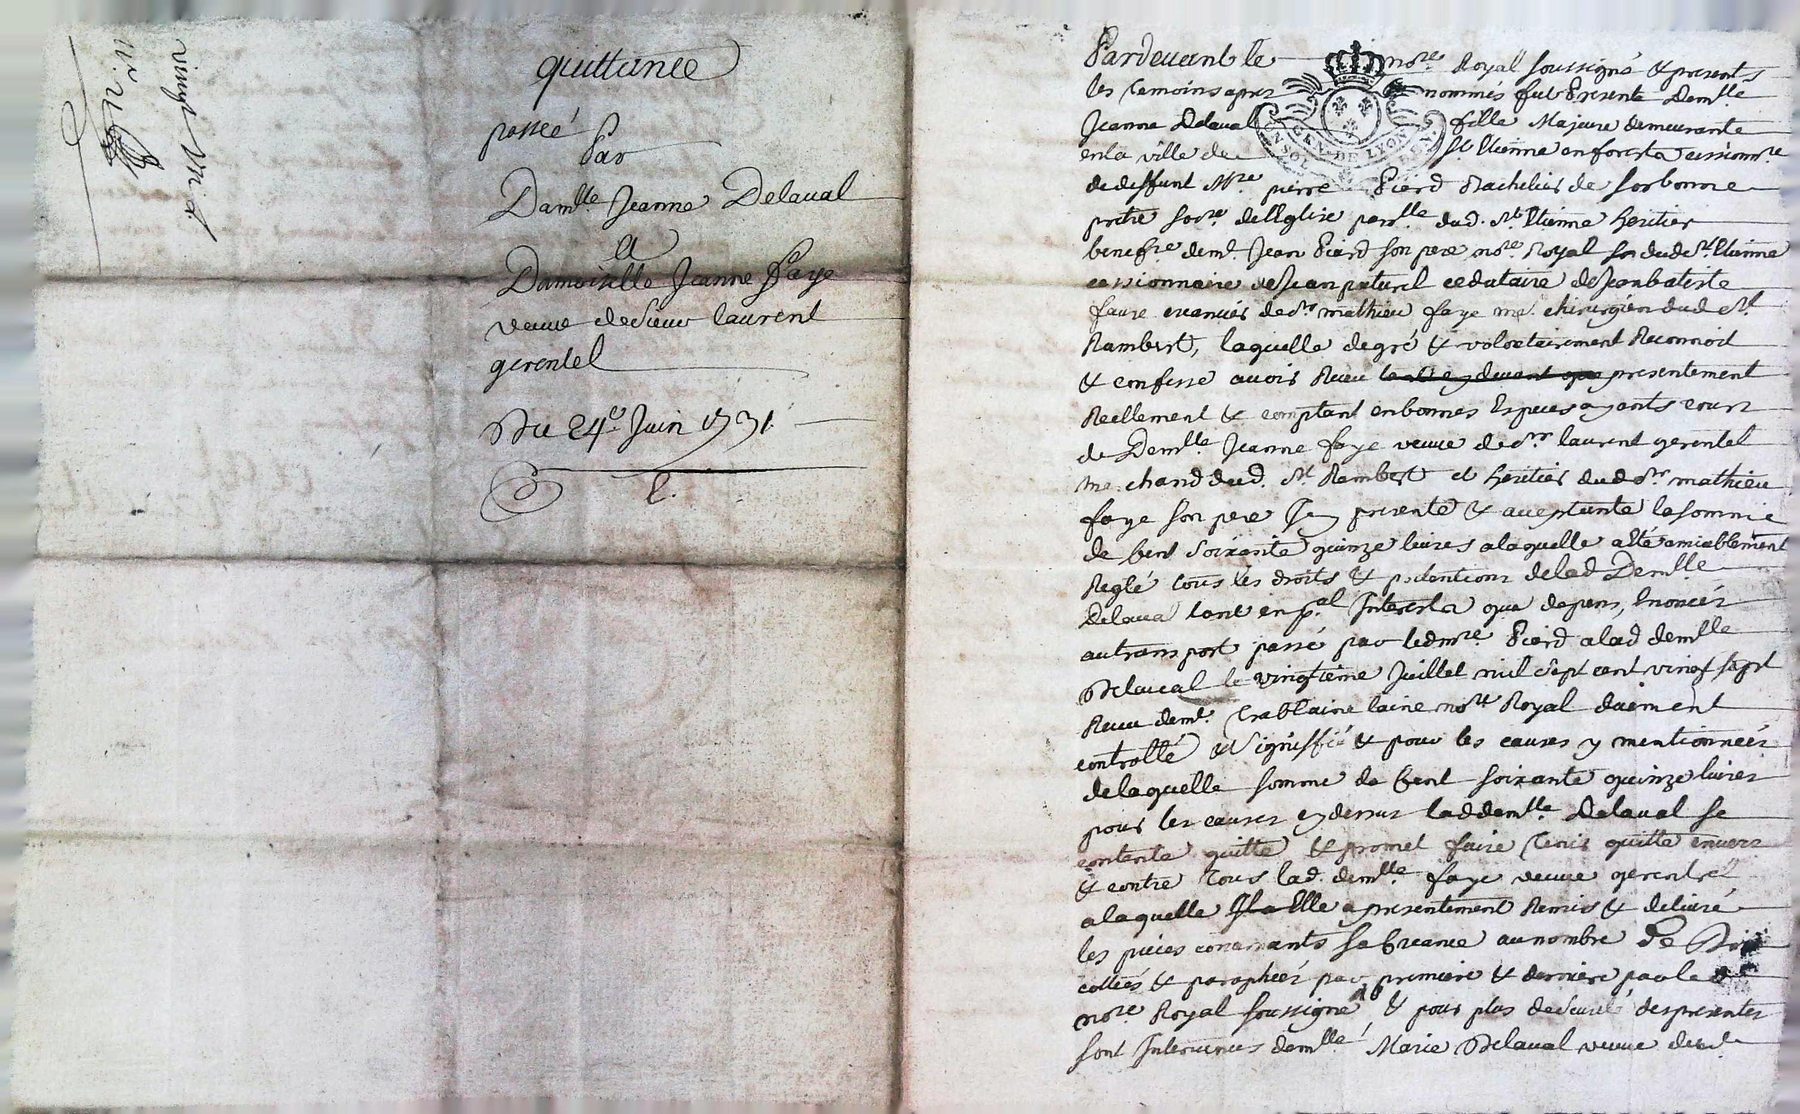 quittance
passeé
Par
Dam.lle Jeanne Delaual
A
Damoiselle Jeanne Faye
veuue de Sieur laurent
gerentel
Du 24.e Juin 1731.
vingt
Pardeuant le no.re Royal soussigné & presents
les temoins apres nommés fut Presente Dem.lle
Jeanne Delaual fille Majeure demeurante
en la ville de S.t Etienne en forests cessionn.re
de deffunt M.re pierre Piard Bachelier de sorbonne
prêtre soc.re de l'Eglise parr.lle dud. S.t Etienne heritier
benef.re de m.e Jean Piard son pere no.re Royal dud S.t Etienne
cessionnaire de Jean paturel cedataire de Jean batiste
faure creancier de S.r mathieu faye m.e chirurgien dud S.t
Rambert, laquelle de gré & volontairement Reconnoit
& confesse auoir Receu presentement
Reellement & comptant en bonnes Especes ayants cours
de Dem.lle Jeanne faye veuue de S.r laurent gerentel
m.e chand dud. S.t Rambert et heritier dud S.r mathieu
faye son pere Icy presente & acceptante la somme
de Cent Soixante quinze liures a laquelle a été amiablement
Reglé tous les droits & pretentions de lad Dem.lle
Delaual tant en p.al Interests que depens, Enoncés
au transport passé par led m.re Piard a lad dem.lle
Delaual le vingtieme Juillet mil sept cent vingt sept
Receu de m.e laine no.re Royal duement
controllé & signiffié & pour les causes y mentionneés
de laquelle somme de Cent soixante quinze liures
pour les causes cy dessus lad dem.lle Delaual se
contente quitte & promet faire tenir quitte enuers
& contre tous lad. dem.lle faye veuue gerentel
a laquelle Elle a presentement Remis & deliuré
les pieces concernants sa Creance au nombre De
cotteés & parapheés par premiere & derniere par le
no.re Royal soussigné & pour plus de seureté des presentes
sont Interuenues dem.lle Marie Delaual veuue de